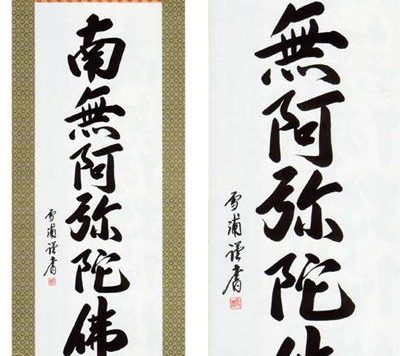 南無阿弥陀佛
雪浦謹書
無阿弥陀
雪浦謹書